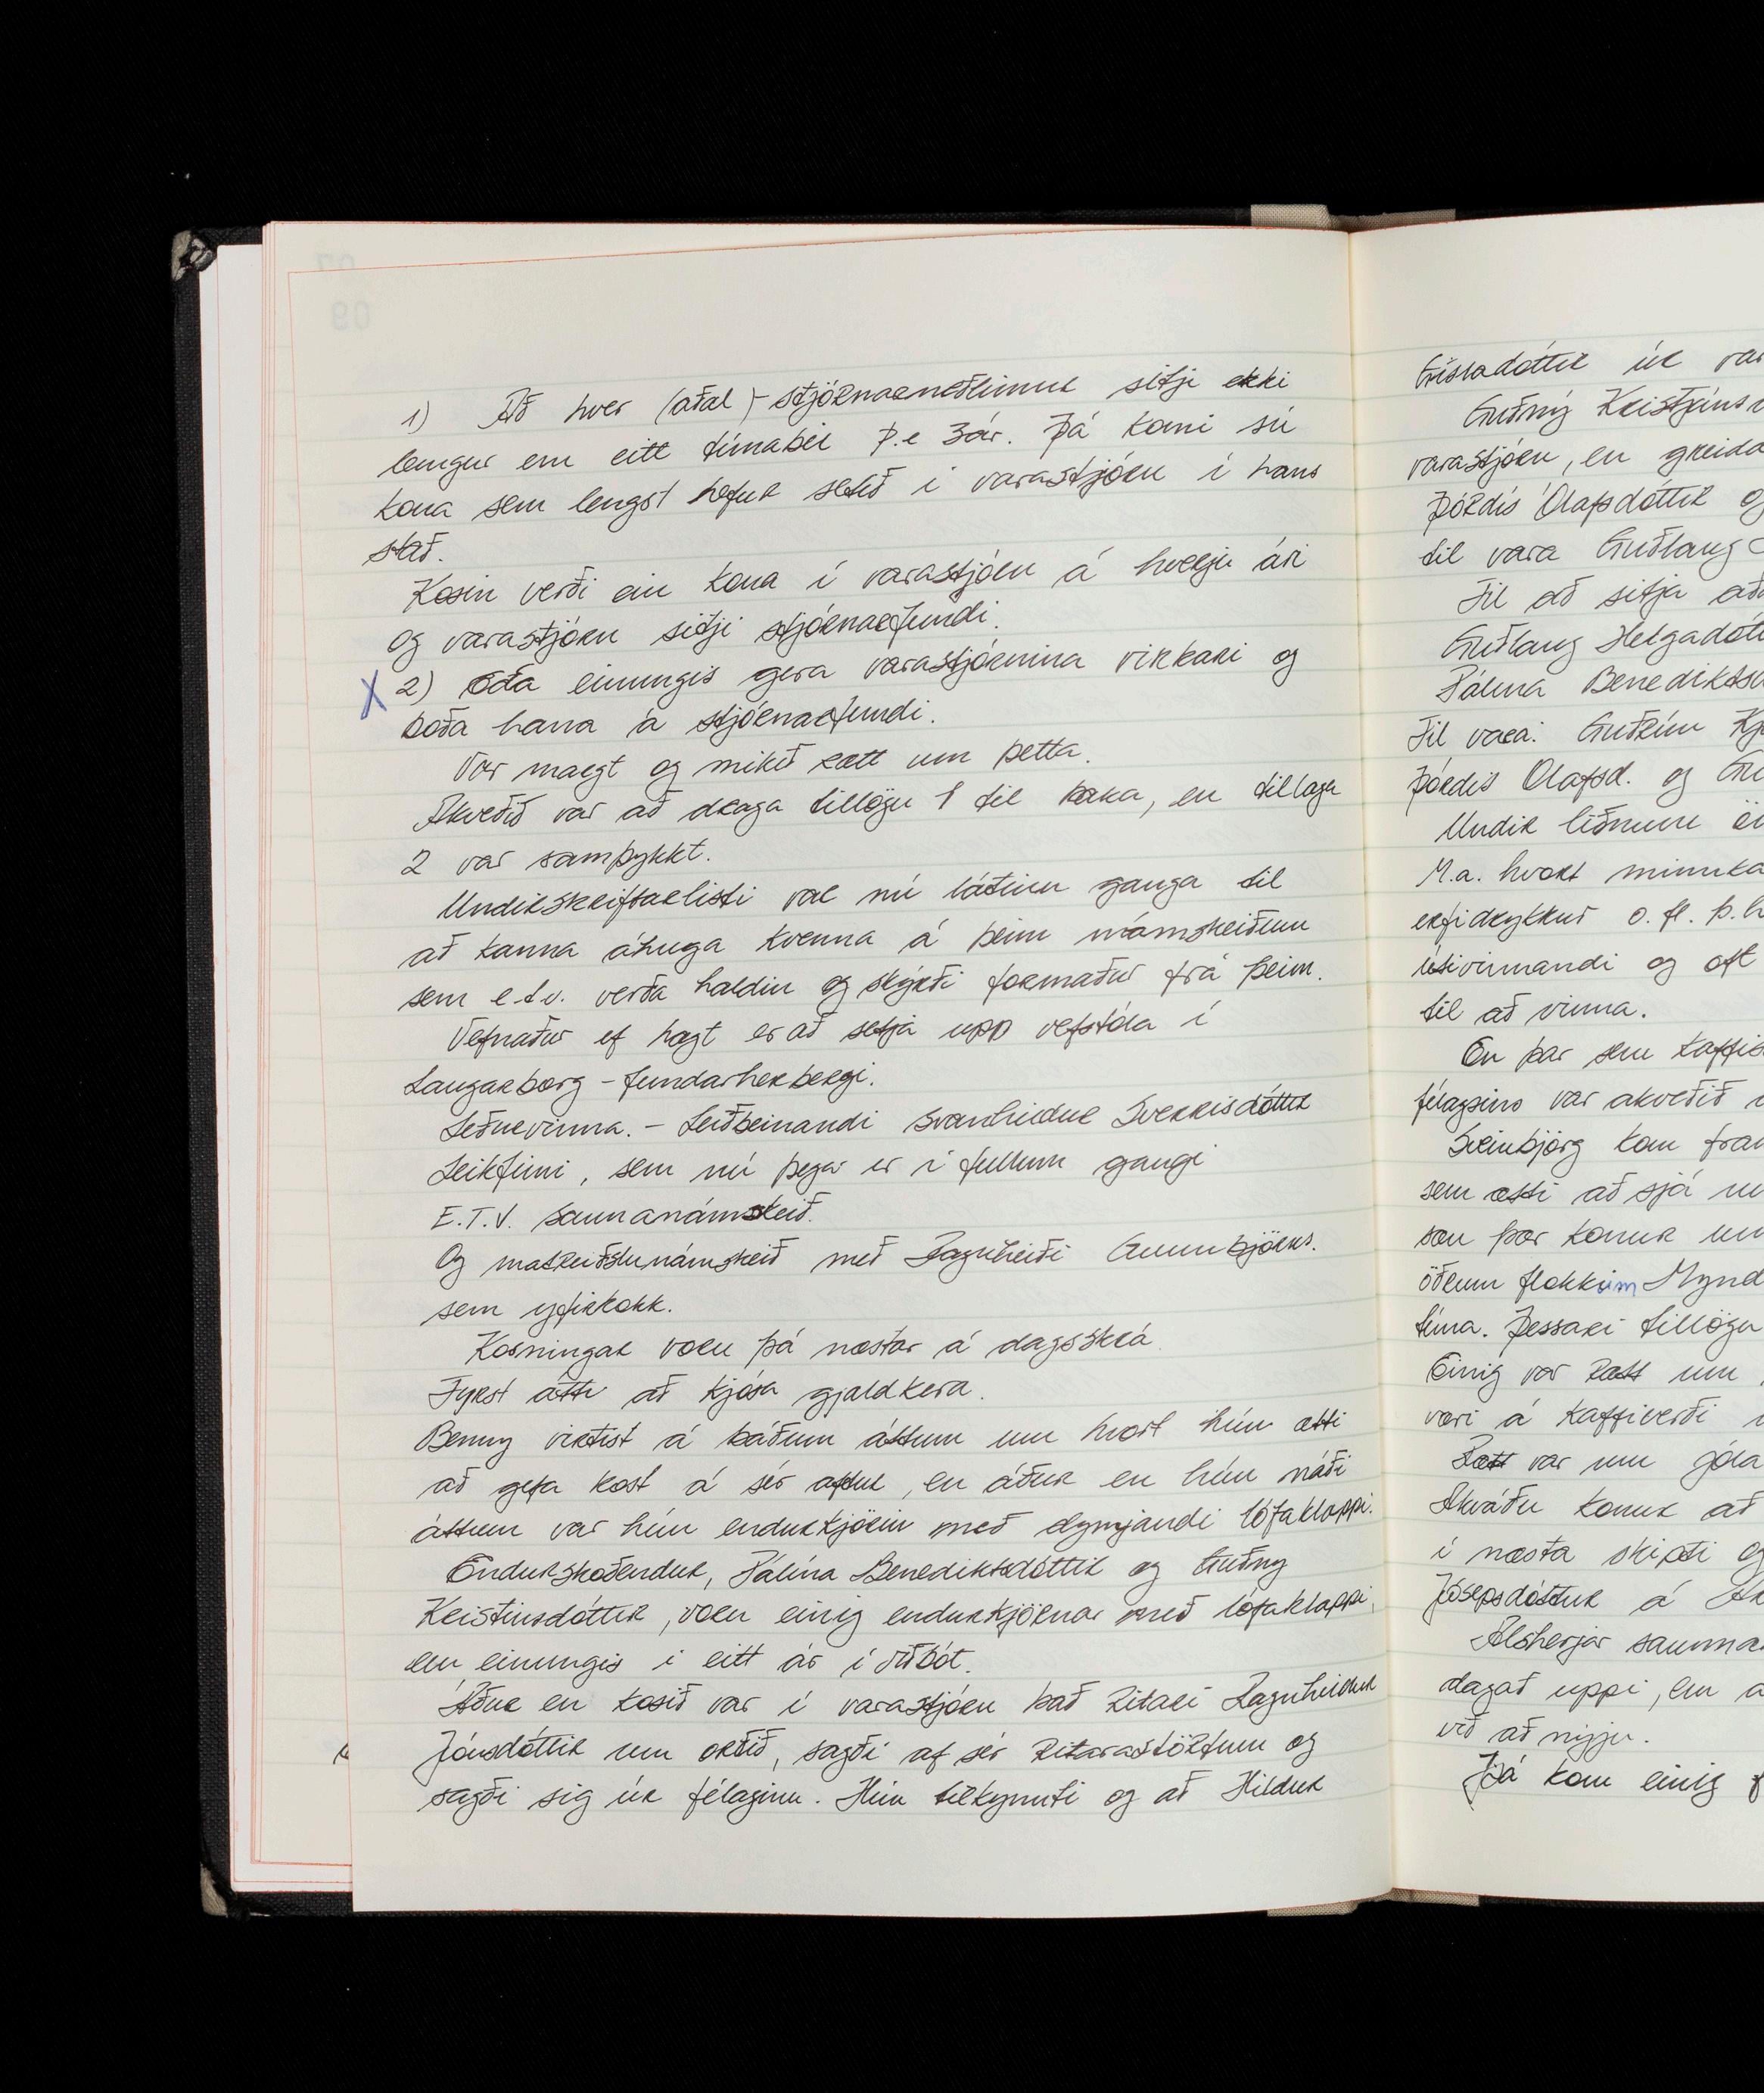 1) Að hver (aðal)-stjórnarmeðlimur sitji ekki
lengur en eitt tímabil þ.e 3 ár. Þá komi sú
kona sem lengst hefur setið i varastjórn í hans
stað.
Kosin verði ein kona í varastjórn á hverju ári
og varastjórn sitji stjórnarfundi.
X 2) Eða einungis gera varastjórnina virkari og
boða hana á stjórnarfundi.
Var margt og mikið rætt um þetta.
Akveðið var að draga tillögu 1 til baka, en tillaga
2 var samþykkt.
Undirskriftarlisti var nú látinn ganga til
að kanna áhuga kvenna á þeim námskeiðum
sem e.t.v. verða haldin og skýrði formaður frá þeim.
Vefnaður ef hægt er að setja upp vefstóla í
Laugarborg - fundarherbergi.
Leðurvinna. - Leiðbeinandi Svanhildur Sverrisdóttir
Leikfimi, sem nú þegar er í fullum gangi
E.T.V. saumanámskeið.
Og matreiðslunámskeið með Ragnheiði Gunnbjörns.
sem yfirkokk.
Kosningar voru þá næstar á dagsskrá.
Fyrst átti að kjósa gjaldkera.
Benny virtist á báðum áttum um hvort hún ætti
að gefa kost á sér aftur, en áður en hún náði
áttum var hún endurkjörin með dynjandi lófaklappi.
Endurskoðendur, Pálína Benediktsdóttir og Guðny
Kristinsdóttir, voru einig endurkjörnar með lófaklappi,
en einungis i eitt ár í viðbót.
Áður en kosið var í varastjórn bað Ritari Ragnheiður
Jónsdóttir um orðið, sagði af sér Ritarastörfum og
sagði sig úr félaginu. Hún tilkynnti og að Hildur
Gísladóttir úr var
Guðný Kristjáns
varastjórn, en greida
Þórdís Ólafsdóttir og
til vara Guðlaug
Til að sitja aða
Guðlaug Helgadótt
Pálína Benedikts
Til vara: Guðrún Kj
Þórdís Olafsd. og Gu
Undir liðnum
M.a. hvort minnka
erfidrykkur o.fl. þ.h
útivinnandi og oft
til að vinna.
En þar sem kaffis
félagsins var akveðið
Sveinbjörg kom fram
sem ætti að sjá um
son þær konur um
öðrum flokkum Mynd
tíma. Þessari tillögu
Einig var Rætt um
væri á kaffiverði
Rætt var um jóla
Akváðu konur að
í næsta skipti og
Jósepsdóttur á
Alsherjar sauma
dagað uppi, en a
við að nýju.
Þá kom einig f